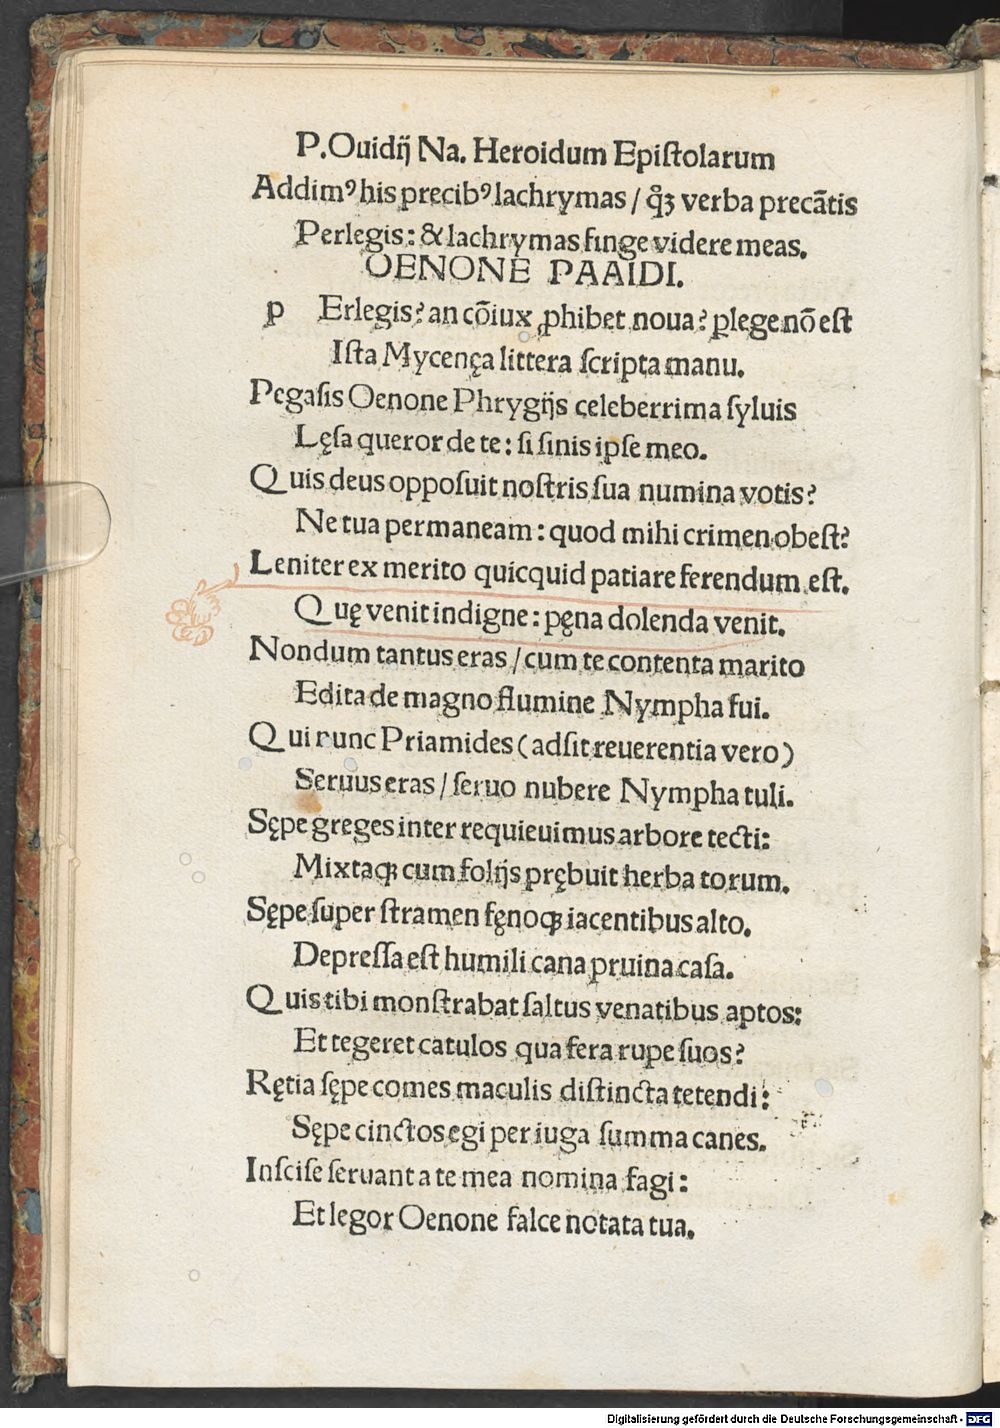 P.Ouidij̈ Na. Heroidum Epiſtolarum
Addimꝰ his precibꝰ lachrymas / q̊ꝫ verba precātis
Perlegis: & lachrymas finge videre meas.
OENONE PAAIDI.
p Erlegis? an cōiux ꝓhibet noua? ꝑlege nō eſt
Iſta Mycenęa littera ſcripta manu.
Pegaſis Oenone Phrygijs celeberrima ſyluis
Lęſa queror de te: ſi ſinis ipſe meo.
Quis deus oppoſuit noſtris ſua numina votis?
Ne tua permaneam: quod mihi crimen obeſt?
Leniter ex merito quicquid patiare ferendum eſt.
Quę venit indigne: pęna dolenda venit.
Nondum tantus eras / cum te contenta marito
Edita de magno flumine Nympha fui.
Qui nunc Priamides (adſit reuerentia vero)
Seruus eras / ſeruo nubere Nympha tuli.
Sępe greges inter requieuimus arbore tecti:
Mixtaqꝫ cum folijs prębuit herba torum.
Sępe ſuper ſtramen fęnoqꝫ iacentibus alto.
Depreſſa eſt humili cana pruina caſa.
Quis tibi monſtrabat ſaltus venatibus aptos:
Et tegeret catulos qua fera rupe ſuos?
Rętia ſępe comes maculis diſtincta tetendi:
Sępe cinctos egi per iuga ſumma canes.
Inſciſe ſeruant a te mea nomina fagi:
Et legor Oenone falce notata tua.
Digitalisierung gefördert durch die Deutsche Forschungsgemeinschaft - DFG